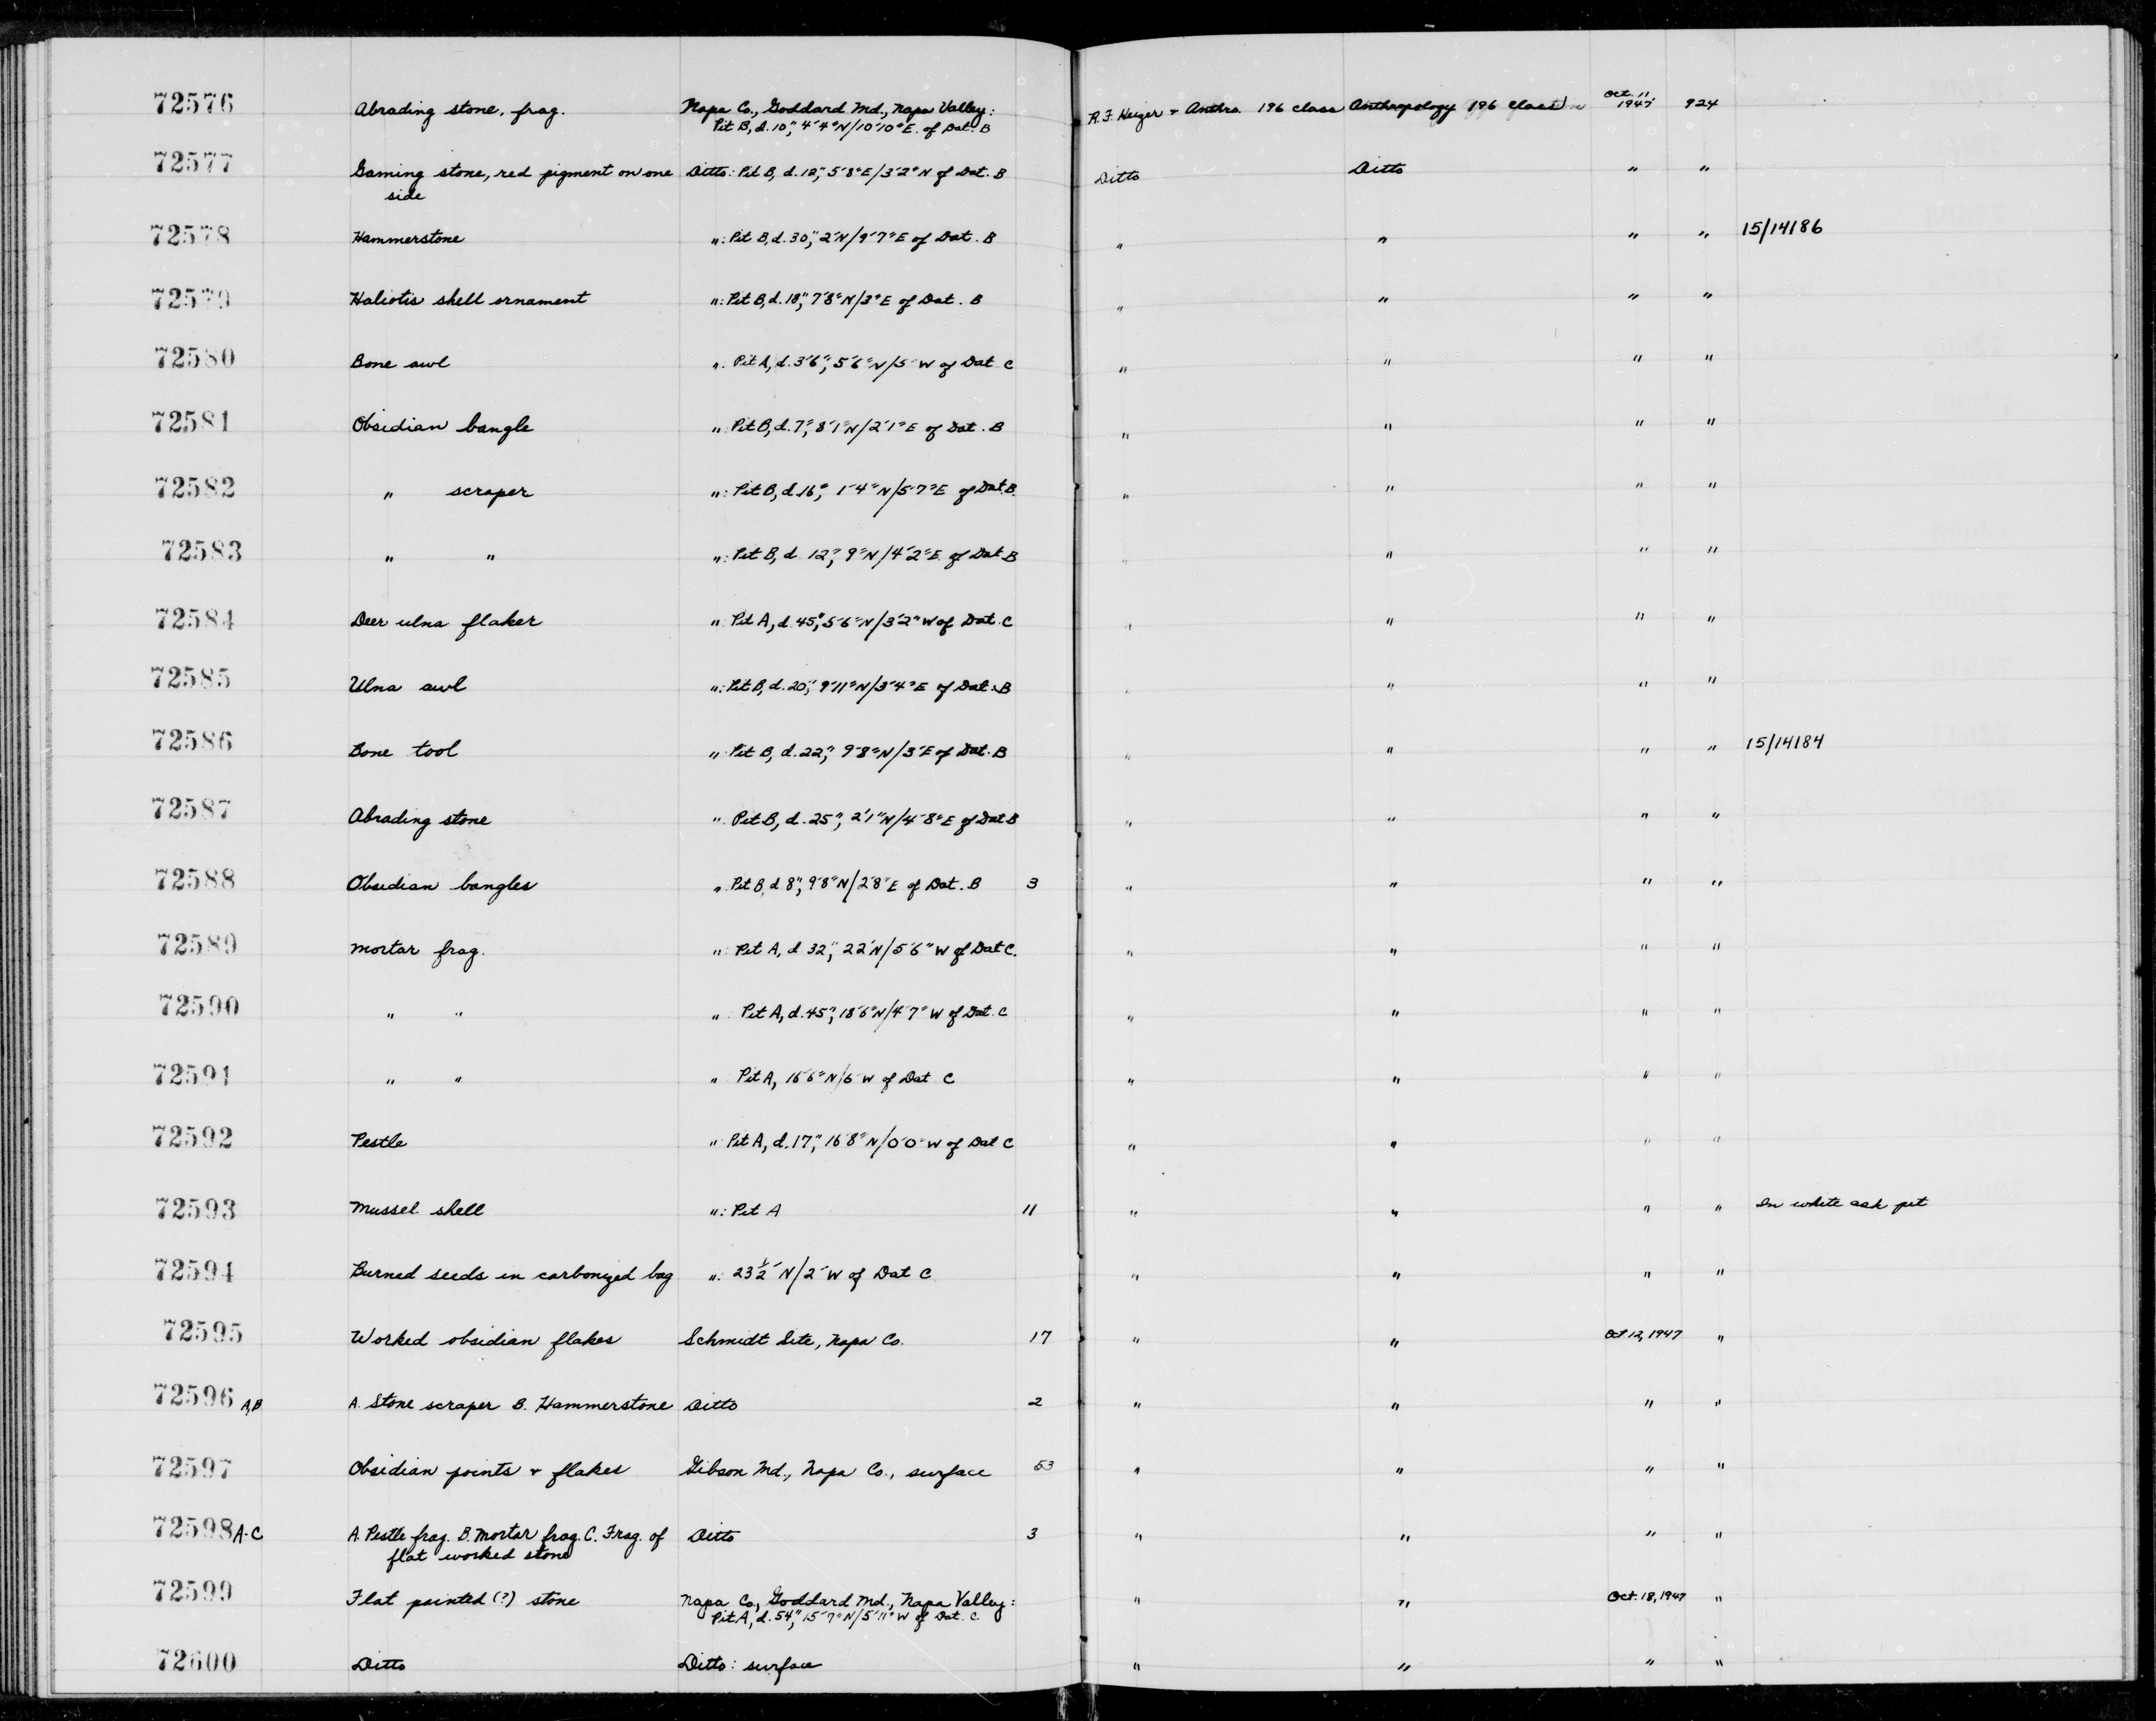 72576 Abrading stone, frag. Napa Co., Goddard Md., Napa Valley: R.F. Heizer + Anthro. 196 class Anthropology 196 class Oct. 11 1947 924
Pit B, d. 10", 4'4"N/10'10"E. of Dat. B
72577 Gaming stone, red pigment on one Ditto: Pit B, d. 12", 5'8"E/3'2"N of Dat. B Ditto Ditto " "
side
72578 Hammerstone ": Pit B, d. 30", 2'N/9'7"E of Dat. B " " " " 15/14186
72579 Haliotis shell ornament ": Pit B, d. 18", 7'8"N/3"E of Dat. B " " " "
72580 Bone awl ": Pit A, d. 3'6", 5'6"N/5' W of Dat C " " " "
72581 Obsidian bangle ": Pit B, d. 7", 8'1"N/2'1"E of Dat. B " " " "
72582 " scraper ": Pit B, d. 16", 1'4"N/5'7"E of Dat B. " " " "
72583 " " ": Pit B, d. 12", 9"N/4'2"E of Dat B " " " "
72584 Deer ulna flaker " Pit A, d. 45", 5'6"N/3'2"W of Dat. C " " " "
72585 Ulna awl ": Pit B, d. 20", 9'11"N/3'4"E of Dat. B " " " "
72586 Bone tool " Pit B, d. 22", 9'8"N/3'E of Dat. B " " " " 15/14184
72587 Abrading stone " Pit B, d. 25", 2'1"N/4'8"E of Dat B " " " "
72588 Obsidian bangles " Pit B, d 8", 9'8"N/2'8"E of Dat. B 3 " " " "
72589 Mortar frag. ": Pit A, d 32", 22'N/5'6" W of Dat C. " " " "
72590 " " ": Pit A, d. 45", 18'6"N/4'7" W of Dat. C " " " "
72591 " " " Pit A, 16'6"N/6' W of Dat C " " " "
72592 Pestle " Pit A, d. 17", 16'8"N/0'0" W of Dat C " " " "
72593 Mussel shell ": Pit A 11 " " " " In white ash pit
72594 Burned seeds in carbonized bag ": 23 1/2' N/2' W of Dat C " " " "
72595 Worked obsidian flakes Schmidt Site, Napa Co. 17 " " Oct 12, 1947 "
72596 A,B A. Stone scraper B. Hammerstone Ditto 2 " " " "
72597 Obsidian points + flakes Gibson Md., Napa Co., surface 53 " " " "
72598 A-C A. Pestle frag. B. Mortar frag. C. Frag. of Ditto 3 " " " "
flat worked stone
72599 Flat painted (?) stone Napa Co., Goddard Md., Napa Valley: " " Oct. 18, 1947 "
Pit A, d. 54", 15'7"N/5'11"W of Dat. C
72600 Ditto Ditto: surface " " " "